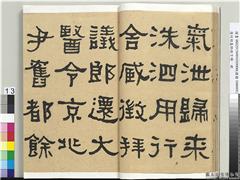 氣泄歸來
洙泗用行
舍臧徵拜
議郎還大
醫令京兆
尹舊都餘
13